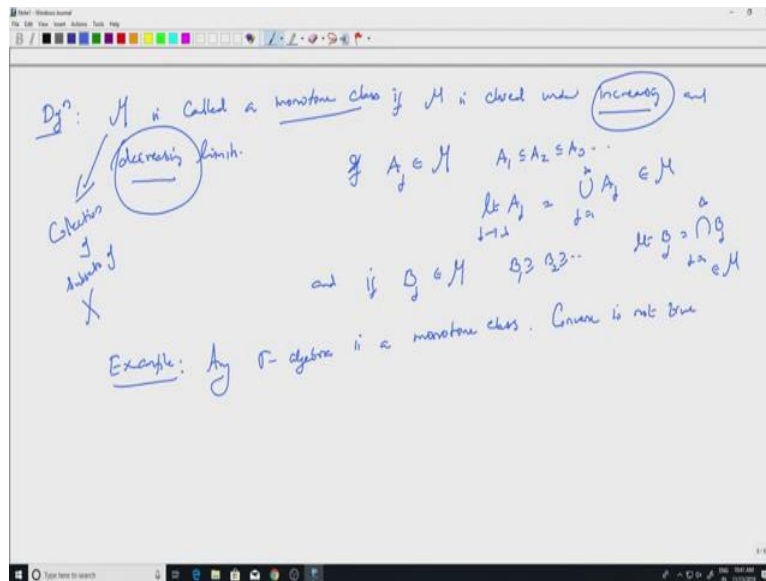 Note1 - Windows Journal
File Edit View Insert Actions Tools Help
Defn: M is called a monotone class if M is closed under increasing and
decreasing limits.
Collection
of
subsets of
X
if A_j ∈ M A_1 ⊆ A_2 ⊆ A_3 ...
lt_{j→∞} A_j = ∪_{j=1}^∞ A_j ∈ M
and if B_j ∈ M B_1 ⊇ B_2 ⊇ ... lt B_j = ∩_{j=1}^∞ B_j ∈ M
Example: Any σ-algebra is a monotone class. Converse is not true
Type here to search
ENG 10:41 AM